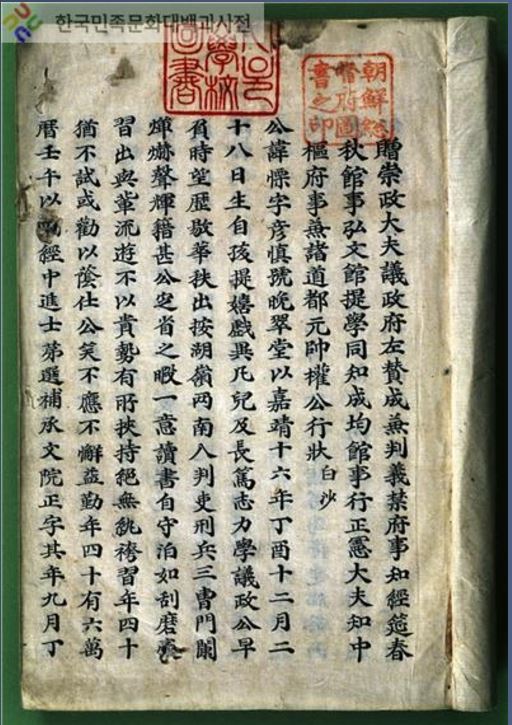 한국민족문화대백과사전
朝鮮總
督府圖
書之印
學校
圖書
贈崇政大夫議政府左贊成兼判義禁府事知經筵春
秋館事弘文館提學同知成均館事行正憲大夫知中
樞府事兼諸道都元帥權公行狀 白沙
公諱慄字彦慎號晩翠堂以嘉靖十六年丁酉十二月二
十八日生自孩提嬉戲異凡兒及長篤志力學議政公早
負時望歷敭華秩出按湖嶺两南入判吏刑兵三曹門闌
燀爀聲輝籍甚公定省之暇一意讀書自守泊如刮磨豪
習出與輩流遊不以貴勢有所挾持絕無紈袴習年四十
猶不試或勸以蔭仕公笑不應不懈益勤年四十有六萬
曆壬午以經中進士苐選補承文院正字其年九月丁